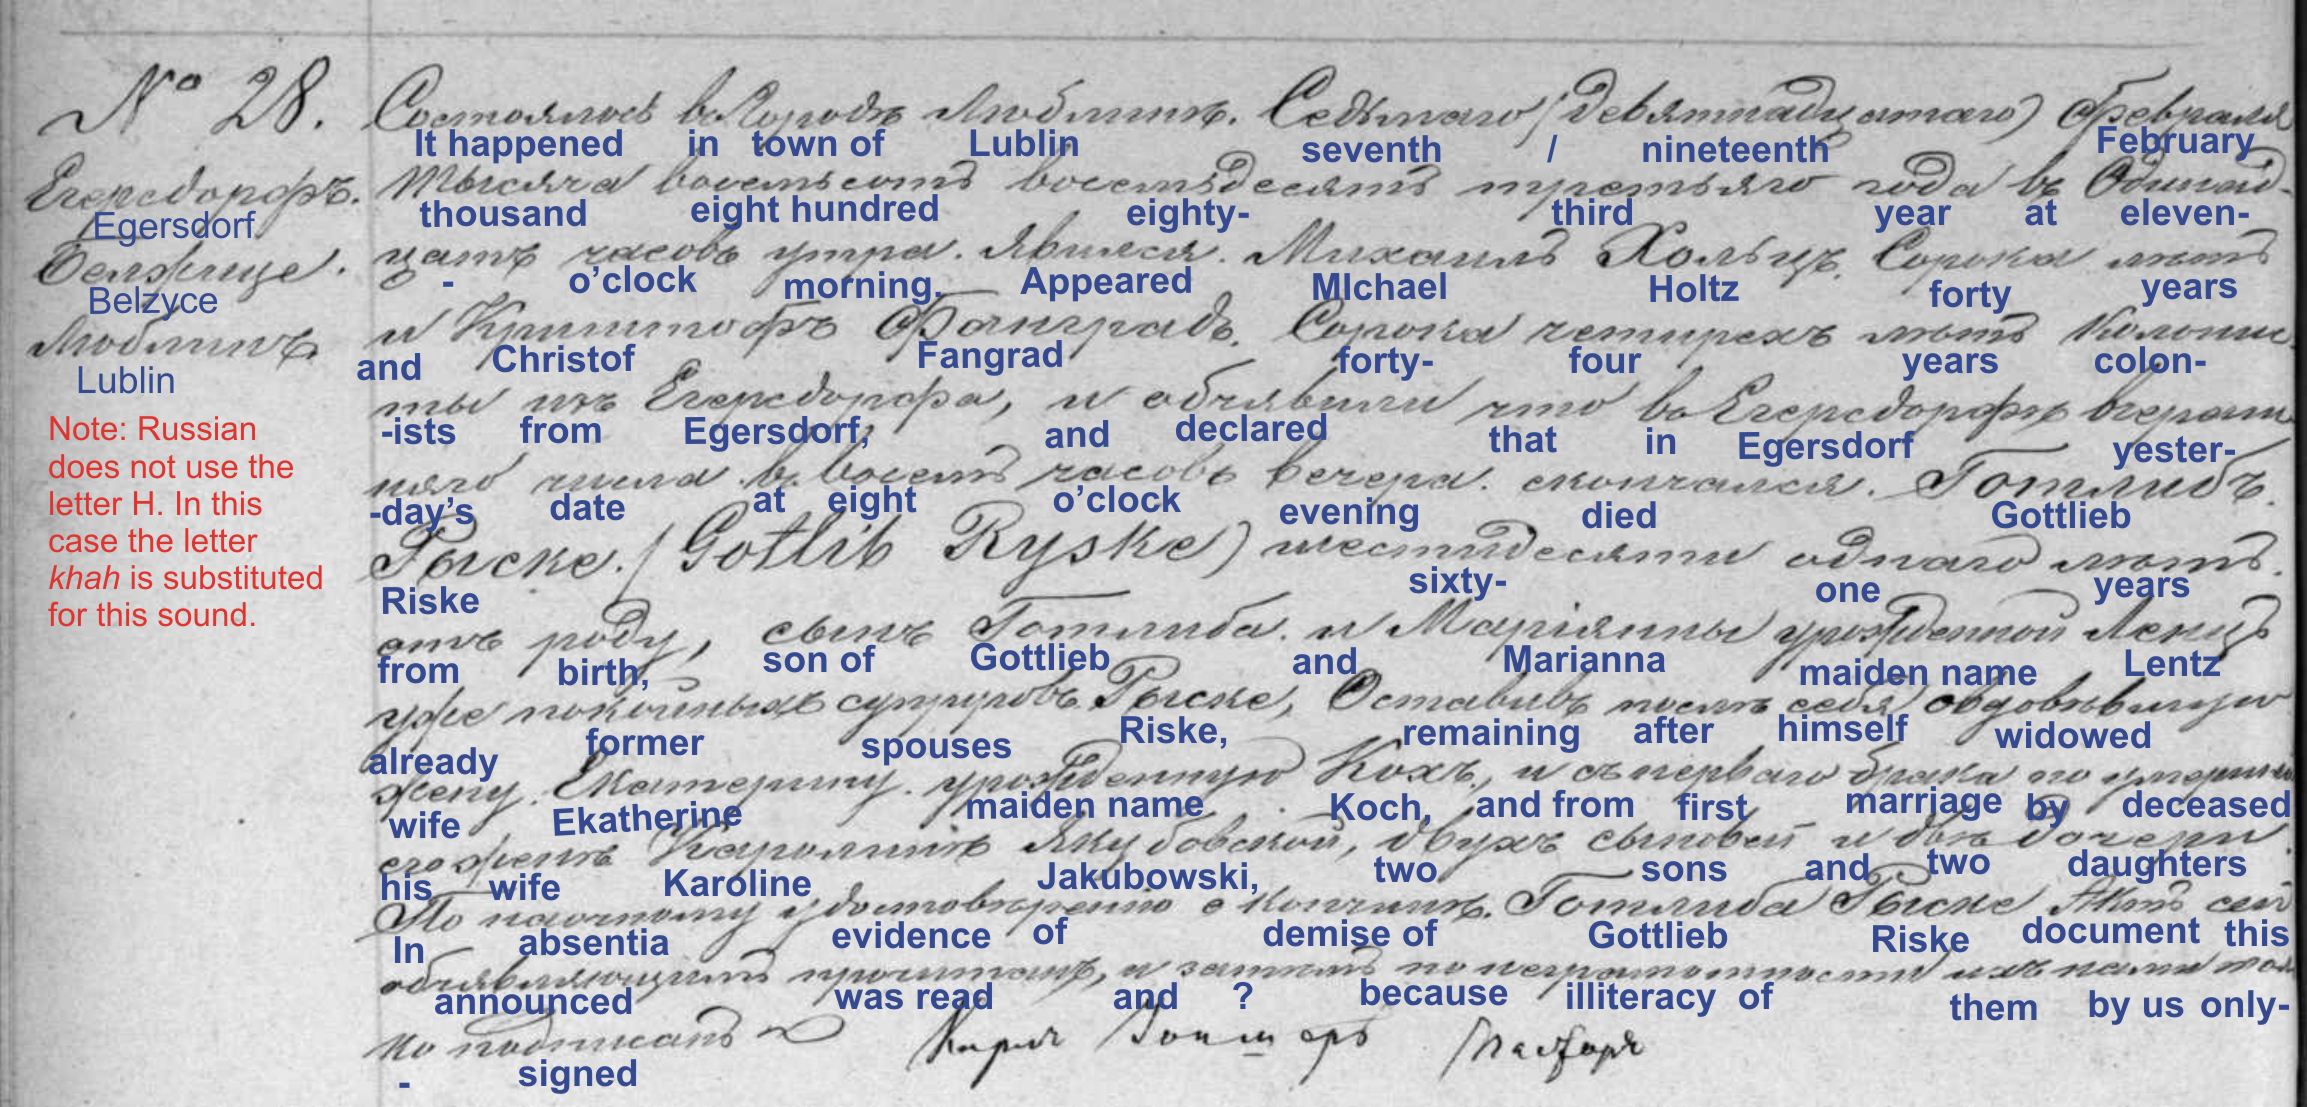 № 28. Состоялось въ Городѣ Люблинѣ. Седьмаго / девятнадцатаго) Февраля
It happened in town of Lublin seventh / nineteenth February
Егерсдорфъ. тысяча восемьсотъ восемьдесятъ третьяго года въ Одинад-
Egersdorf thousand eight hundred eighty- third year at eleven-
Белжице. цать часовъ утра. Явился. Михаилъ Хольцъ. Сорока лѣтъ
Belzyce - o’clock morning. Appeared MIchael Holtz forty years
Люблинъ и Криштофъ Фанградъ. Сорока четырехъ лѣтъ Колони
Lublin and Christof Fangrad forty- four years colon-
сты изъ Егерсдорфа, и объявили что въ Егерсдорфѣ вчераш
-ists from Egersdorf, and declared that in Egersdorf yester-
няго числа въ восемь часовъ вечера. скончался. Готлибъ.
-day’s date at eight o’clock evening died Gottlieb
Рыске. / Gotlib Ryske) шестидесяти одного лѣтъ.
Riske sixty- one years
отъ роду, сынъ Готлиба. и Маріянны урожденной Ленцъ
from birth, son of Gottlieb and Marianna maiden name Lentz
уже покойныхъ супруговъ Рыске, Оставивъ послѣ себя овдовѣвшую
already former spouses Riske, remaining after himself widowed
жену. Екатерину. урожденную Кохъ, и съ перваго брака по умершей
wife Ekatherine maiden name Koch, and from first marrjage by deceased
его женѣ Каролинѣ Якубовской, двухъ сыновей и двѣ дочери.
his wife Karoline Jakubowski, two sons and two daughters
По наочному удостовѣренію о кончинѣ. Готлиба Рыске Актъ сей
In absentia evidence of demise of Gottlieb Riske document this
объявляющимъ прочитанъ, и затѣмъ по неграмотности ихъ нами толь
announced was read and ? because illiteracy of them by us only-
ко подписанъ
- signed
Note: Russian
does not use the
letter H. In this
case the letter
khah is substituted
for this sound.